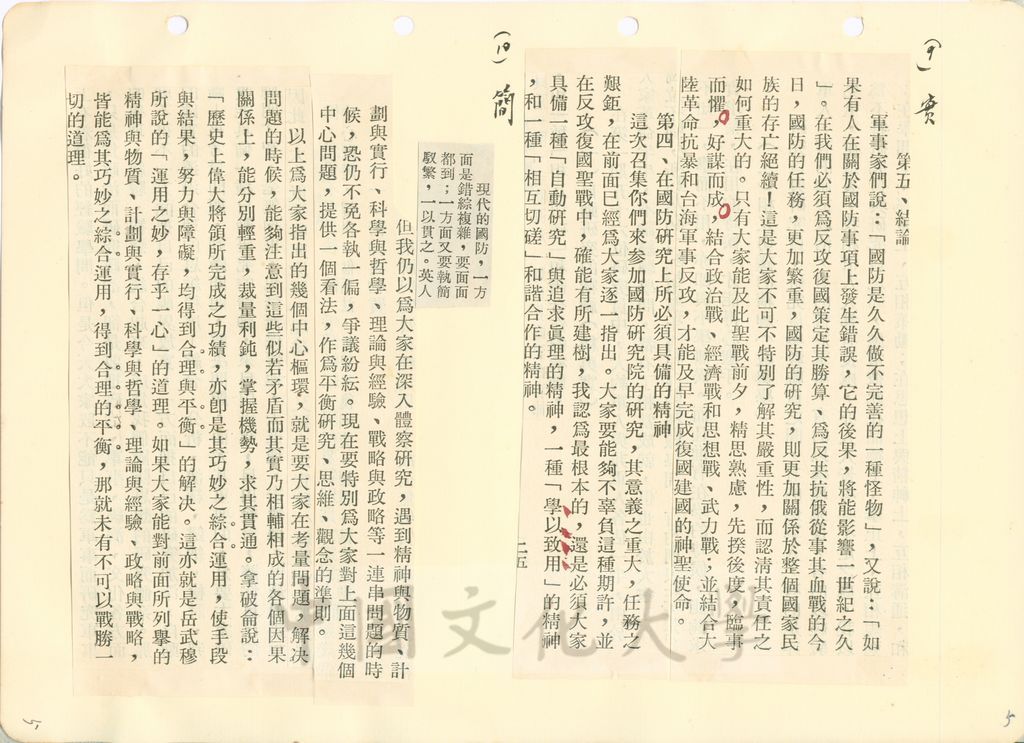 (9) 實
第五、結論
軍事家們說：「國防是久久做不完善的一種怪物」，又說：「如
果有人在關於國防事項上發生錯誤，它的後果，將能影響一世紀之久
」。在我們必須為反攻復國策定其勝算、為反共抗俄從事其血戰的今
日，國防的任務，更加繁重，國防的研究，則更加關係於整個國家民
族的存亡絕續！這是大家不可不特別了解其嚴重性，而認清其責任之
如何重大的。只有大家能及此聖戰前夕，精思熟慮，先揆後度，臨事
而懼，好謀而成，結合政治戰、經濟戰和思想戰、武力戰；並結合大
陸革命抗暴和台海軍事反攻，才能及早完成復國建國的神聖使命。
第四、在國防研究上所必須具備的精神
這次召集你們來參加國防研究院的研究，其意義之重大，任務之
艱鉅，在前面已經為大家逐一指出。大家要能夠不辜負這種期許，並
在反攻復國聖戰中，確能有所建樹，我認為最根本的，還是必須大家
具備一種「自動研究」與追求眞理的精神，一種「學以致用」的精神
，和一種「相互切磋」和諧合作的精神。
二五
(10) 簡
現代的國防，一方
面是錯綜複雜，要面面
都到；一方面又要執簡
馭繁，一以貫之。英人
但我仍以為大家在深入體察研究，遇到精神與物質、計
劃與實行、科學與哲學、理論與經驗、戰略與政略等一連串問題的時
候，恐仍不免各執一偏，爭議紛紜。現在要特別為大家對上面這幾個
中心問題，提供一個看法，作為平衡研究、思維、觀念的準則。
以上為大家指出的幾個中心樞環，就是要大家在考量問題，解決
問題的時候，能夠注意到這些似若矛盾而其實乃相輔相成的各個因果
關係上，能分別輕重，裁量利鈍，掌握機勢，求其貫通。拿破侖說：
「歷史上偉大將領所完成之功績，亦卽是其巧妙之綜合運用，使手段
與結果，努力與障礙，均得到合理與平衡」的解決。這亦就是岳武穆
所說的「運用之妙，存乎一心」的道理。如果大家能對前面所列舉的
精神與物質、計劃與實行、科學與哲學、理論與經驗、政略與戰略，
皆能為其巧妙之綜合運用，得到合理的平衡，那就未有不可以戰勝一
切的道理。
中國文化大學
5
5